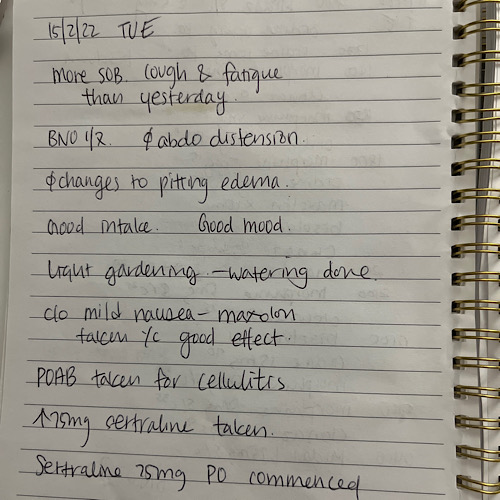 15/2/22 TUE
more SOB. Cough & fatigue
than yesterday.
BNO 1/7. ∅ abdo distension.
∅ changes to pitting edema.
Good intake. Good mood.
Light gardening - watering done.
c/o mild nausea - maxolon
taken c good effect.
POAB taken for cellulitis
↑ 25mg sertraline taken.
Sertraline 25mg PO commenced